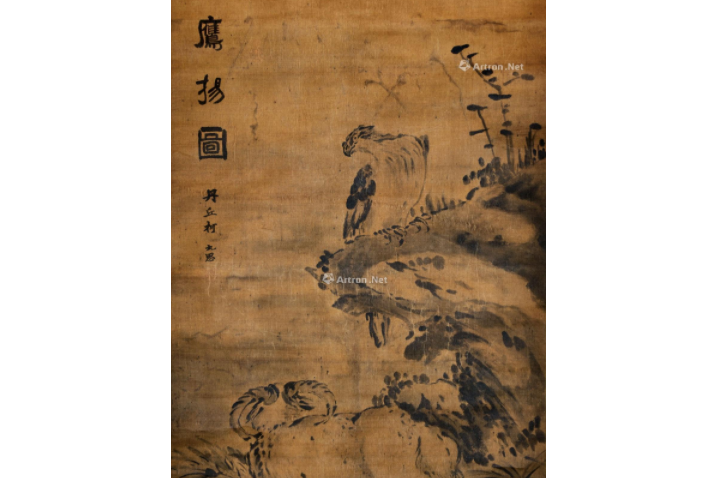 鷹揚圖
丹丘柯九思
Artron.Net
Artron.Net